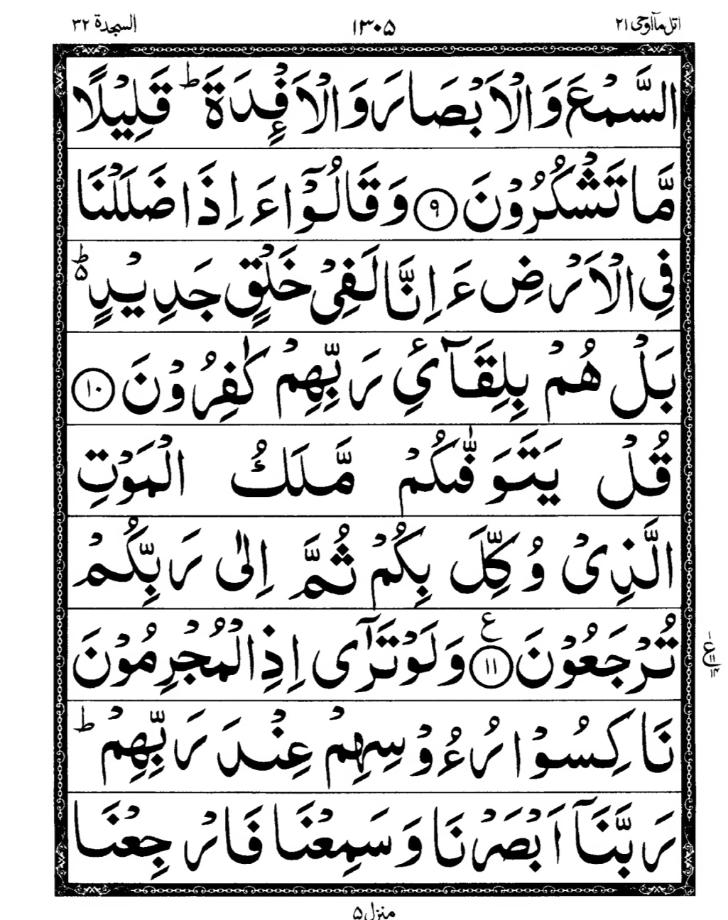 اتل مآ اوحی ٢١ ١٣٠٥ السجدة ٣٢
السَّمْعَ وَالْاَبْصَارَ وَالْاَفْـِٕدَةَ ؕ قَلِيْلًا
مَّا تَشْكُرُوْنَ ﴿٩﴾ وَقَالُوْٓا ءَاِذَا ضَلَلْنَا
فِي الْاَرْضِ ءَاِنَّا لَفِيْ خَلْقٍ جَدِيْدٍ ؕ۵
بَلْ هُمْ بِلِقَآئِ رَبِّهِمْ كٰفِرُوْنَ ﴿١٠﴾
قُلْ يَتَوَفّٰىكُمْ مَّلَكُ الْمَوْتِ
الَّذِيْ وُكِّلَ بِكُمْ ثُمَّ اِلٰى رَبِّكُمْ
تُرْجَعُوْنَ ﴿١١﴾ ع وَلَوْ تَرٰٓى اِذِ الْمُجْرِمُوْنَ
١ ع ١١ ١٤
نَاكِسُوْا رُءُوْسِهِمْ عِنْدَ رَبِّهِمْ ؕ
رَبَّنَآ اَبْصَرْنَا وَسَمِعْنَا فَارْجِعْنَا
منزل ٥